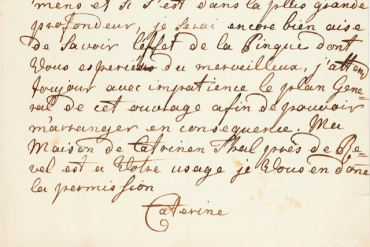 mens et si s'est dans la plus grande
profondeur, je serai encore bien aise
de savoir l'effet de la Pinque dont
Vous esperciés du merveilleux, j'attend
toujour avec impatience le plan Gene
ral de cet ouvrage afin de pouvoir
m'arranger en consequence. Ma
Maison de Catrinen Thal près de Re
vel est a Votre usage je Vous en done
la permission
Caterine